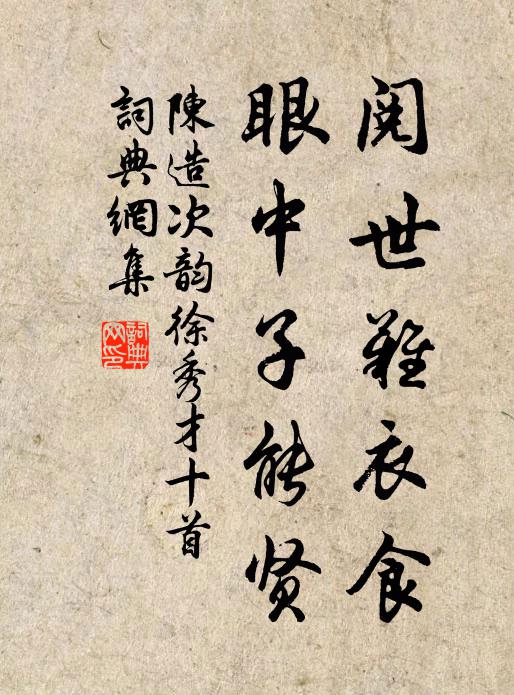 閱世難衣食
眼中子能贤
陳造次韵徐秀才十首
詞典網集
詞典網印